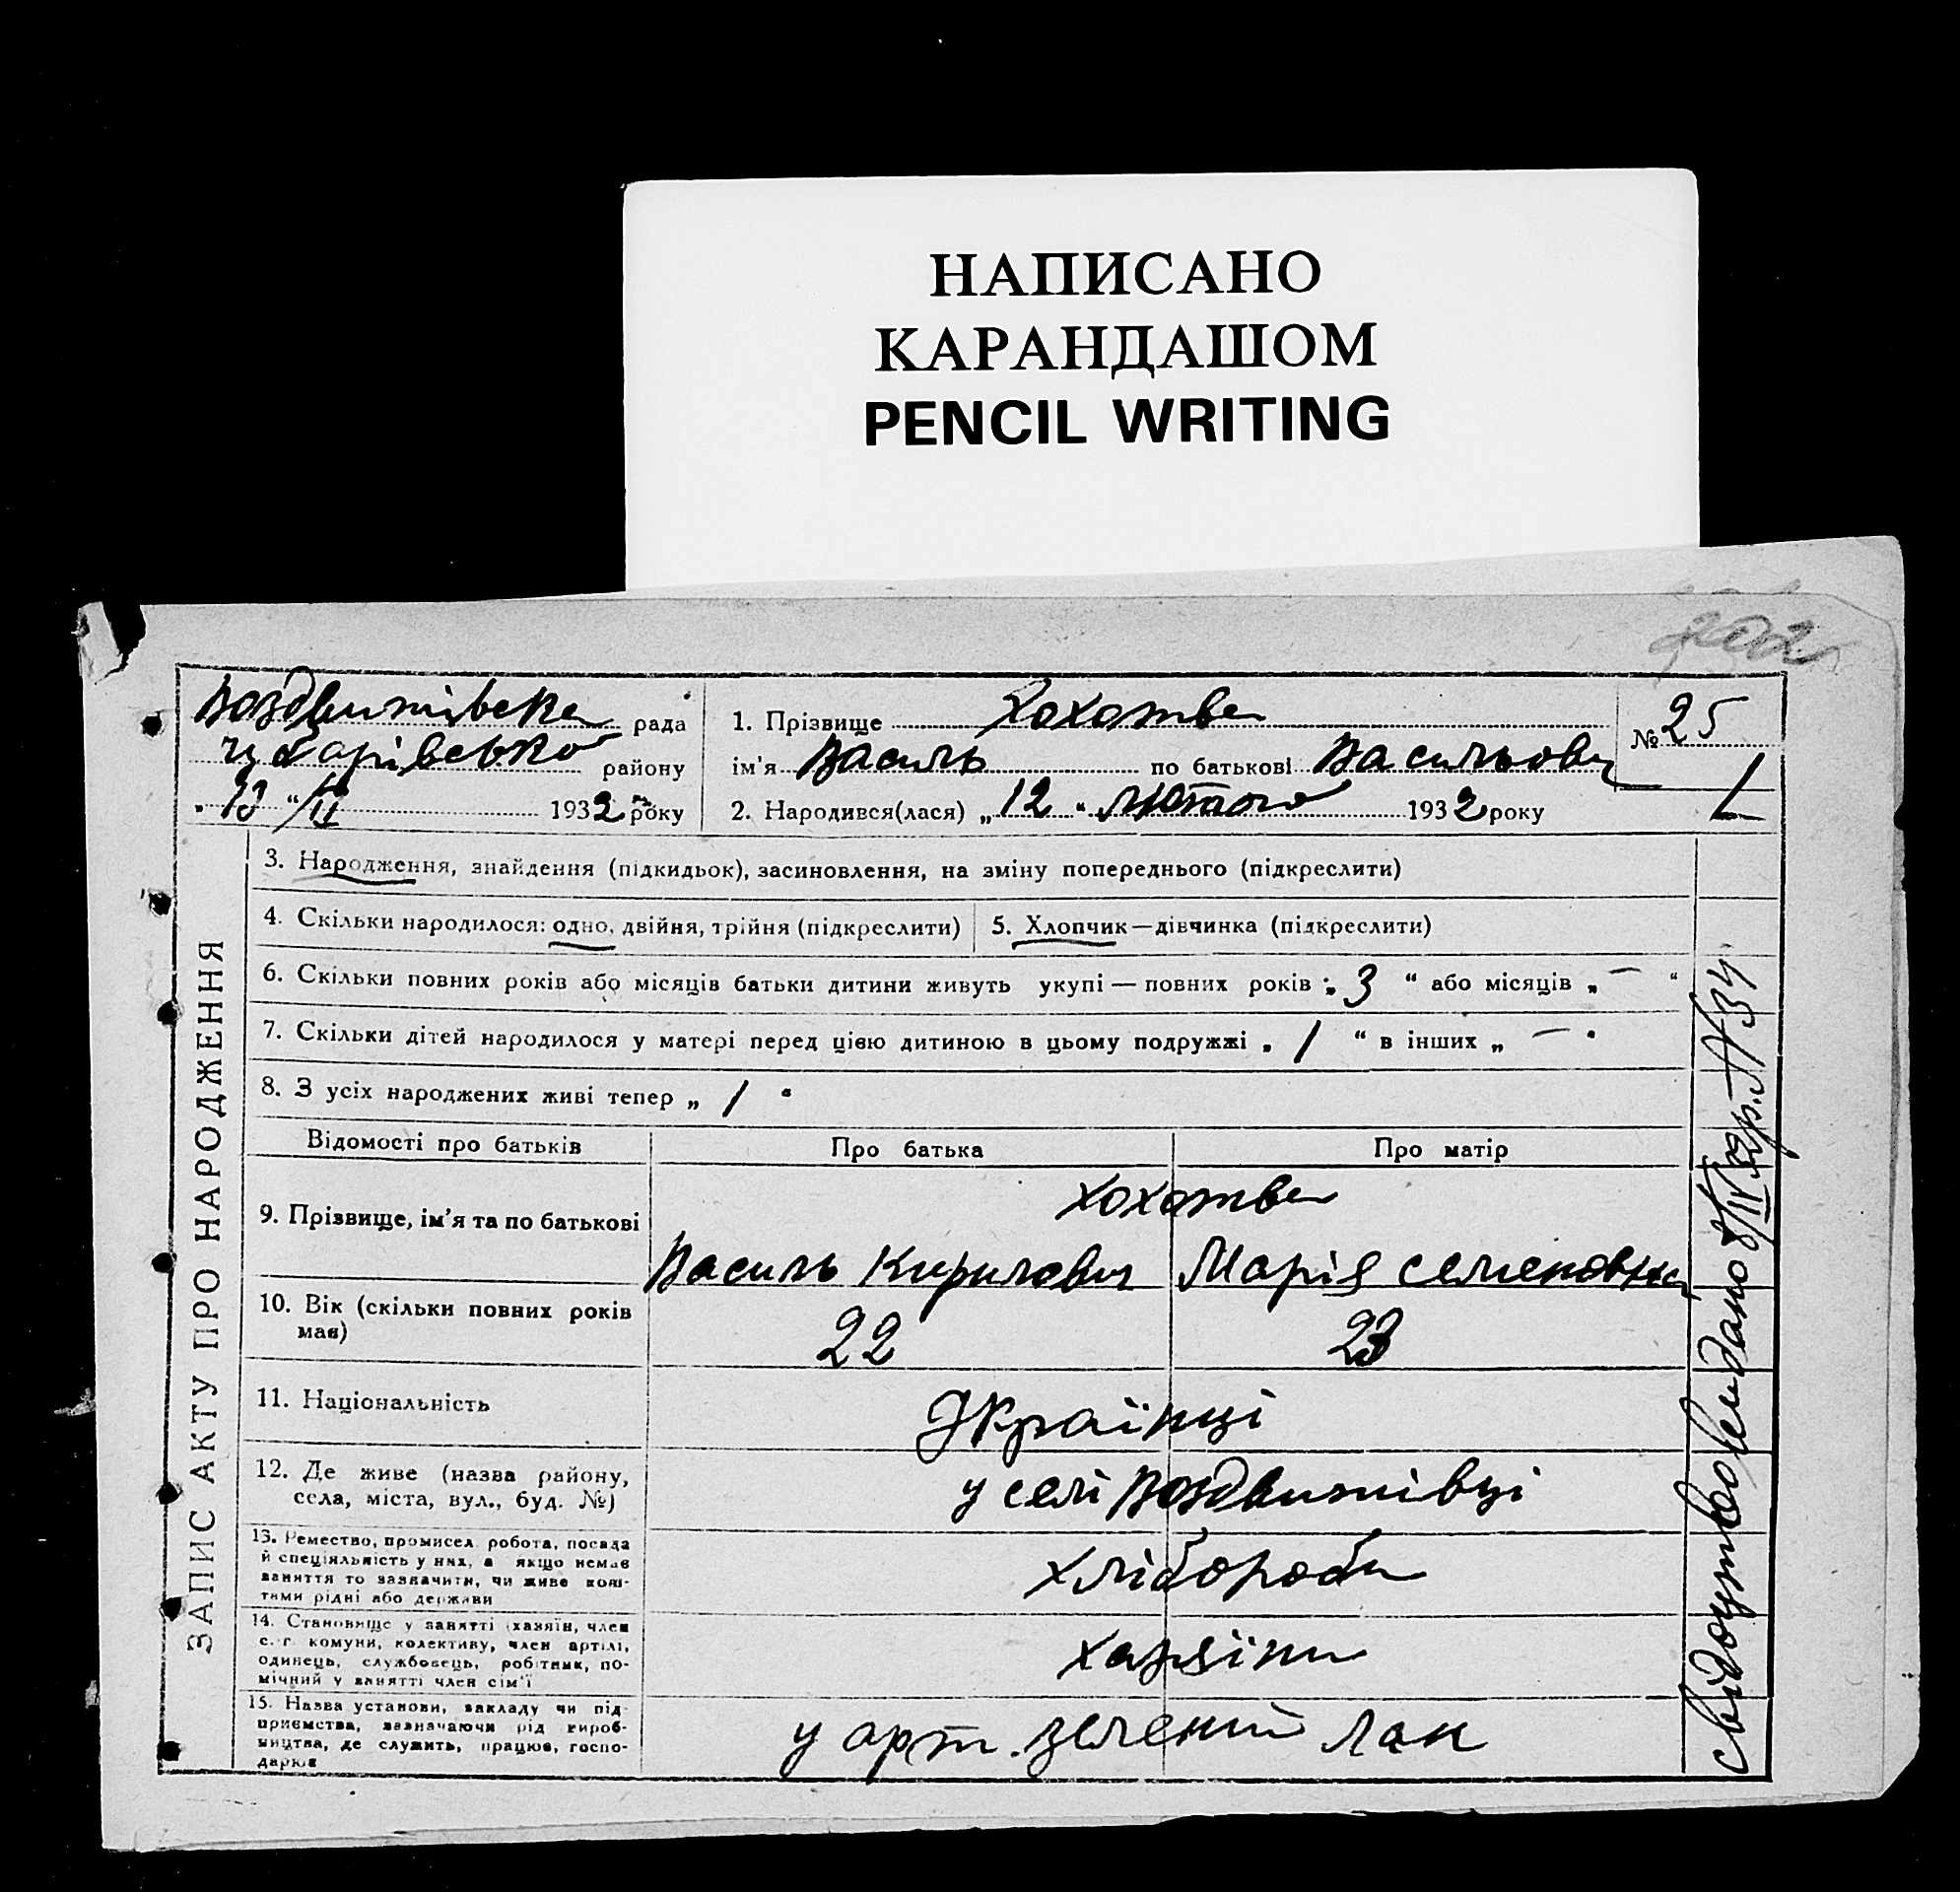 НАПИСАНО
КАРАНДАШОМ
PENCIL WRITING
Воздвижівська рада
Чубарівсько району
„13“/II 1932 року
1. Прізвище Хохотва
ім'я Василь по батькові Васильович
2. Народився(лася) „12“ Лютого 1932 року
№ 25
ЗАПИС АКТУ ПРО НАРОДЖЕННЯ
3. Народження, знайдення (підкидьок), засиновлення, на зміну попереднього (підкреслити)
4. Скільки народилося: одно, двійня, трійня (підкреслити)
5. Хлопчик—дівчинка (підкреслити)
6. Скільки повних років або місяців батьки дитини живуть укупі — повних років „3“ або місяців „—“
7. Скільки дітей народилося у матері перед цією дитиною в цьому подружжі „1“ в інших „—“
8. З усіх народжених живі тепер „1“
Відомості про батьків Про батька Про матір
9. Прізвище, ім'я та по батькові
Хохотва
Василь Кирилович Марія Семеновна
10. Вік (скільки повних років
має)
22 23
11. Національність Українці
12. Де живе (назва району,
села, міста, вул., буд. №)
у селі Воздвижівці
13. Ремество, промисел, робота, посада
й спеціяльність у них, а якщо немає
заняття то зазначити, чи живе кош-
тами рідні або держави
хлібороби
14. Становище у занятті (хазяїн, член
с.-г. комуни, колективу, член артілі,
одинець, службовець, робітник, по-
мічний у занятті член сім'ї
хазяїни
15. Назва установи, закладу чи під-
приємства, зазначаючи рід вироб-
ництва, де служить, працює, госпо-
дарює
у арт. Зелений Лан
свідоцтво видано